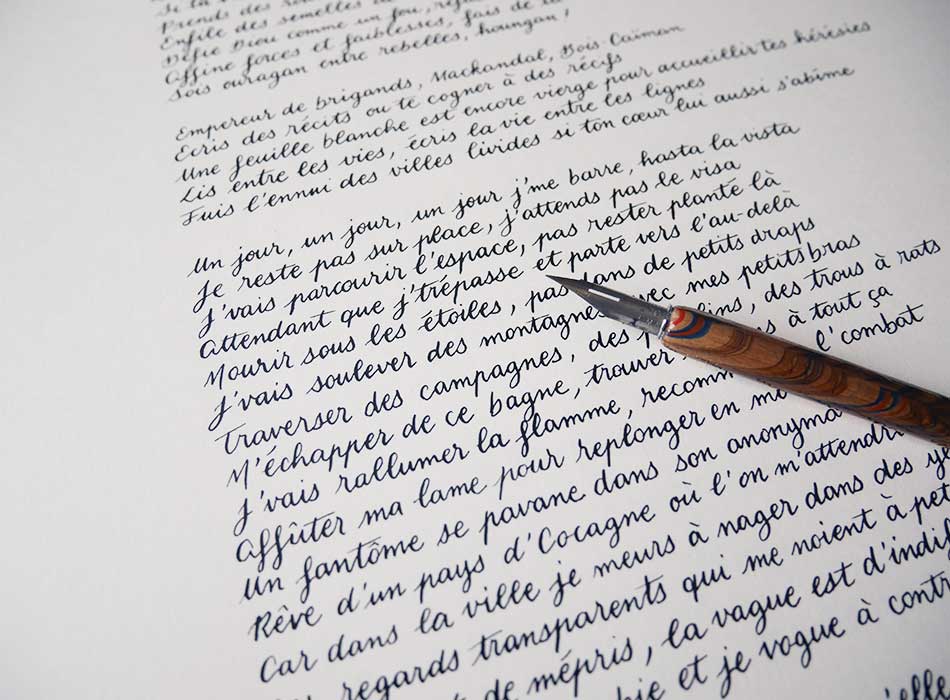 Si ta
Prends des
Enfile des semelles
Défie Dieu comme un fou,
Affine forces et faiblesses, fais de ta
Sois ouragan entre rebelles, houngan !
Empereur de brigands, Mackandal, Bois Caïman
Écris des récits ou te cogner à des récifs
Une feuille blanche est encore vierge pour accueillir tes hérésies
Lis entre les vies, écris la vie entre les lignes
Fuis l'ennui des villes livides si ton cœur lui aussi s'abîme
Un jour, un jour, un jour j'me barre, hasta la vista
Je reste pas sur place, j'attends pas le visa
J'vais parcourir l'espace, pas rester planté là
Attendant que j'trépasse et parte vers l'au-delà
Mourir sous les étoiles, pas dans de petits draps
J'vais soulever des montagnes avec mes petits bras
Traverser des campagnes, des p lins, des trous à rats
M'échapper de ce bagne, trouver s à tout ça
J'vais rallumer la flamme, recomm l'combat
Affûter ma lame pour replonger en mo
Un fantôme se pavane dans son anonyma
Rêve d'un pays d'Cocagne où l'on m'attendri
Car dans la ville je meurs à nager dans des ye
regards transparents qui me noient à pet
de mépris, la vague est d'indif
ie et je vogue à contr